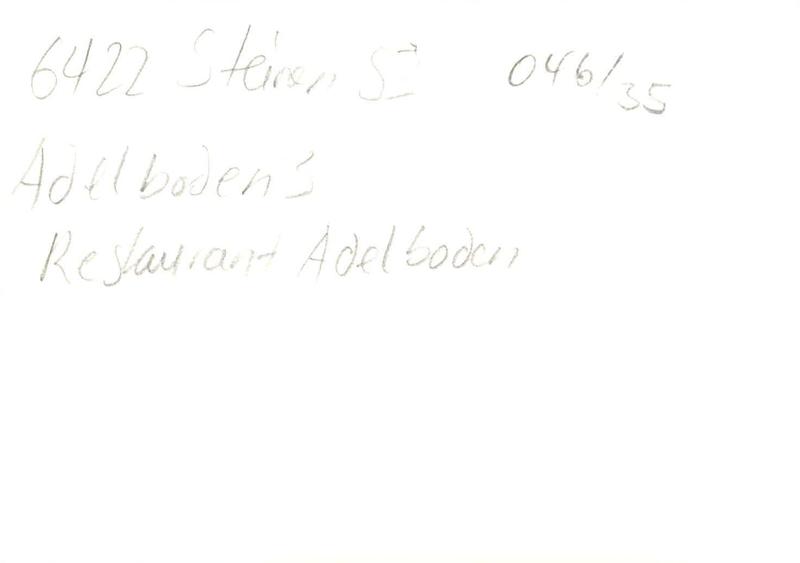 6422 Steinen SZ 046/35
Adelboden's
Restaurant Adelboden